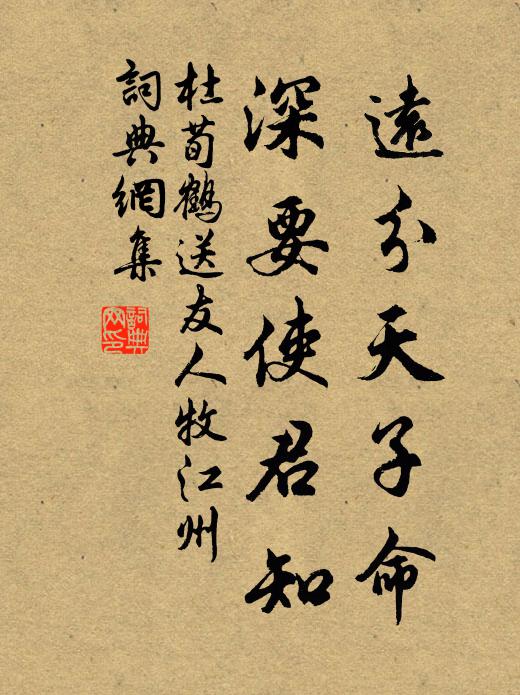 遠分天子命
深要使君知
杜荀鶴送友人牧江州
詞典網集
詞典网印